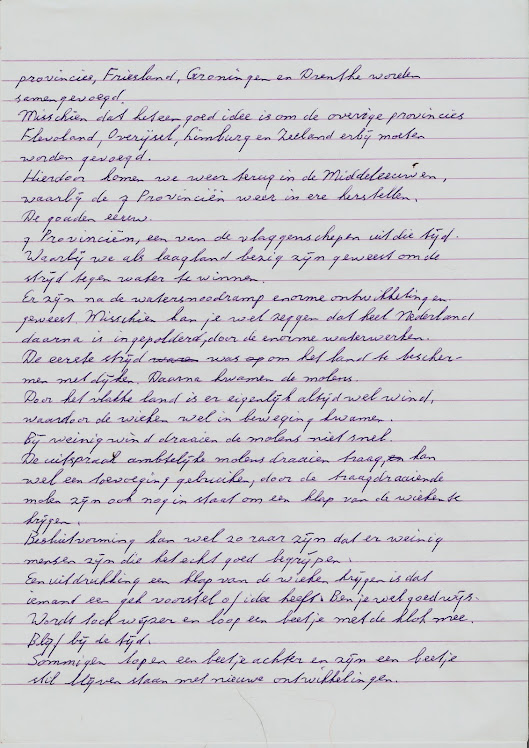 provincies, Friesland, Groningen en Drenthe worden
samengevoegd.
Misschien dat het een goed idee is om de overige provincies
Flevoland, Overijsel, Limburg en Zeeland erbij moeten
worden gevoegd.
Hierdoor komen we weer terug in de Middeleeuwen,
waarbij de 7 Provinciën weer in ere herstellen.
De gouden eeuw.
7 Provinciën, een van de vlaggenschepen uit die tijd.
Waarbij we als laagland bezig zijn geweest om de
strijd tegen water te winnen.
Er zijn na de watersnoodramp enorme ontwikkelingen
geweest. Misschien kan je wel zeggen dat heel Nederland
daarna is ingepolderd, door de enorme waterwerken.
De eerste strijd waren was op om het land te bescher-
men met dijken. Daarna kwamen de molens.
Door het vlakke land is er eigenlijk altijd wel wind,
waardoor de wieken wel in beweging kwamen.
Bij weinig wind draaien de molens niet snel.
De uitspraak ambtelijke molens draaien traag, en kan
wel een toevoeging gebruiken, door de traagdraaiende
molen zijn ook nog in staat om een klap van de wieken te
krijgen.
Besluitvorming kan wel zo raar zijn dat er weinig
mensen zijn die het echt goed begrijpen.
Een uitdrukking een klap van de wieken krijgen is dat
iemand een gek voorstel of idee heeft. Ben je wel goed wijs.
Wordt toch wijzer en loop een beetje met de klok mee.
Blijf bij de tijd.
Sommigen lopen een beetje achter en zijn een beetje
stil blijven staan met nieuwe ontwikkelingen.